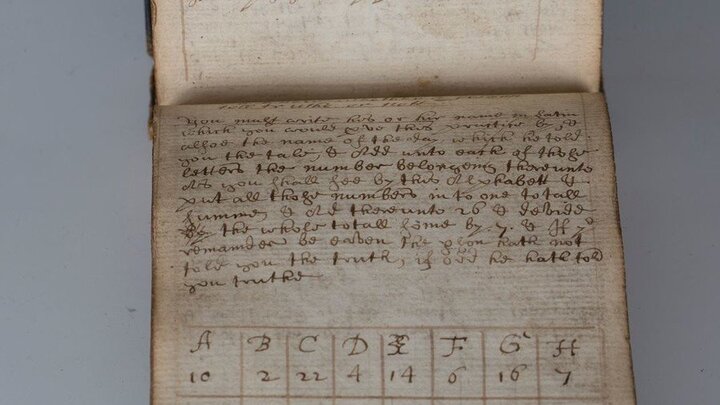 tell truthe or Not
You must write his or her name in latin
which you would prove this practise by, &
allsoe the name of the day which he told
you the tale, & Add unto each of those
letters the number belonging thereunto
As you shall see by this Alphabett &
put all those numbers in to one totall
summe, & Ad thereunto 26 & devide
by the whole totall some by 7. & If ye
remainder be eaven the pson hath not
told you the truth, if odd he hath told
you truthe
A B C D E F G H
10 2 22 4 14 6 16 7